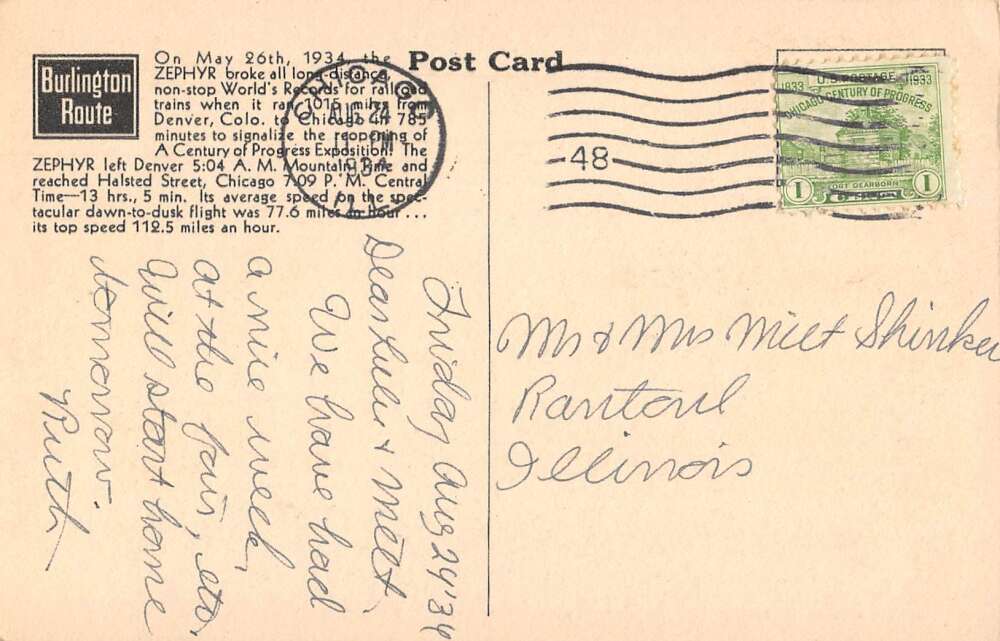 Burlington
Route
On May 26th, 1934, the
ZEPHYR broke all long-distance,
non-stop World's Records for railroad
trains when it ran 1015 miles from
Denver, Colo. to Chicago in 785
minutes to signalize the reopening of
A Century of Progress Exposition! The
ZEPHYR left Denver 5:04 A. M. Mountain Time and
reached Halsted Street, Chicago 7:09 P. M. Central
Time—13 hrs., 5 min. Its average speed on the spec-
tacular dawn-to-dusk flight was 77.6 miles an hour...
its top speed 112.5 miles an hour.
Post Card
AUG 24
1934
48
U.S. POSTAGE
1833 1933
CHICAGO CENTURY OF PROGRESS
FORT DEARBORN
1 1
Friday Aug 24 '34
Dear Lulu & Milt,
We have had
a nice week,
at the fair, etc.
Will start home
tomorrow.
Ruth
Mr & Mrs Milt Shinker
Rantoul
Illinois